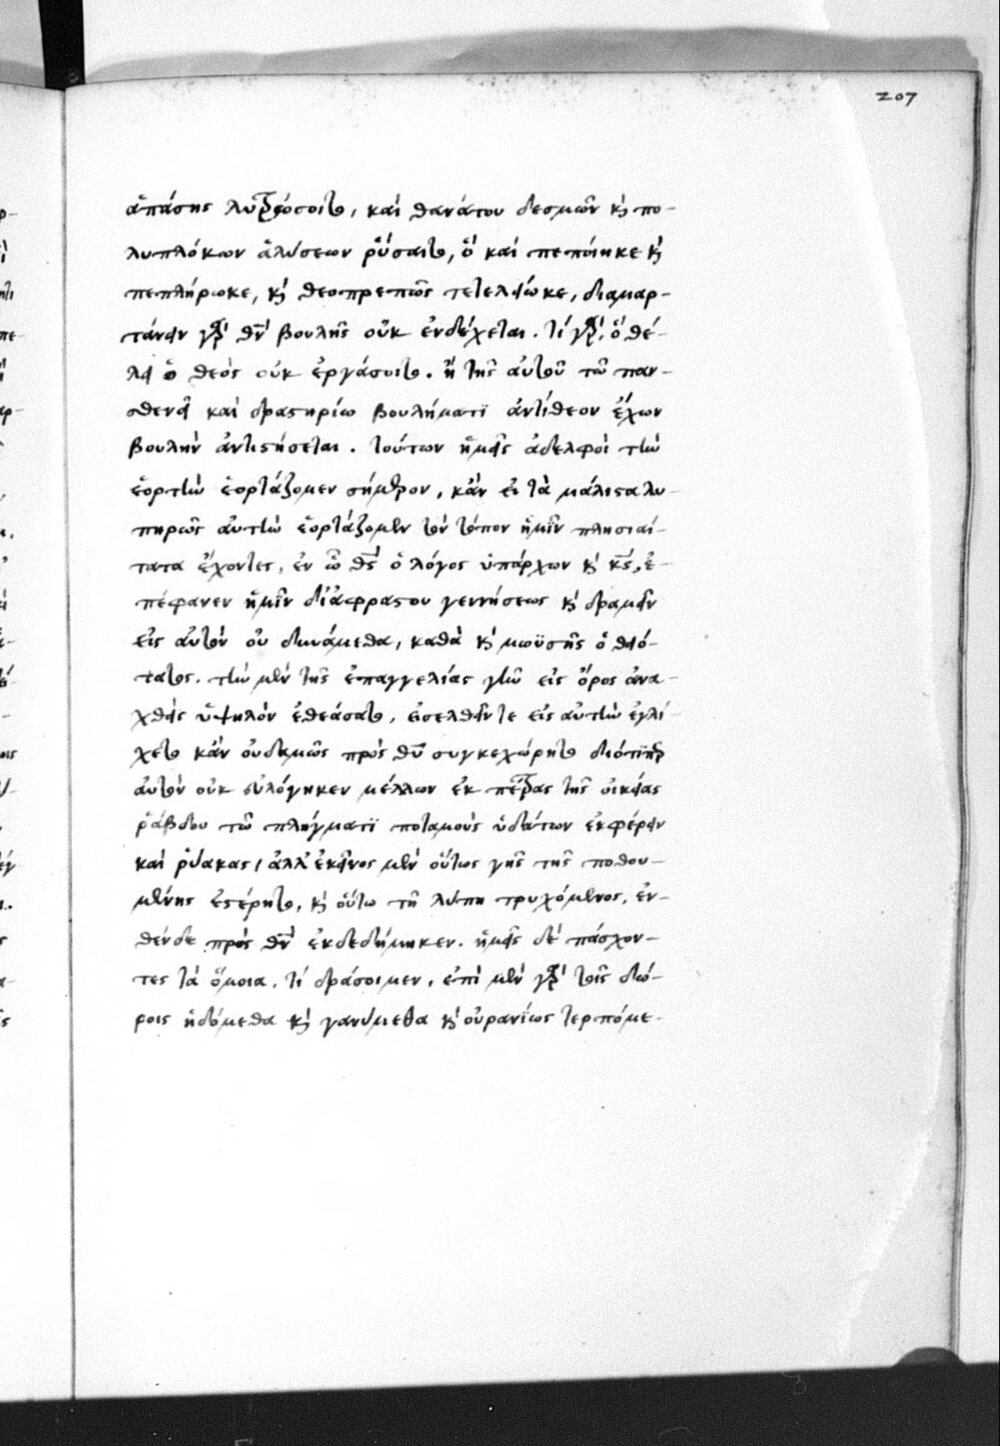 207
ἁπάσης λυτρώσοιτο, καὶ θανάτου δεσμῶν κ πο-
λυπλόκων ἁλύσεων ῥύσαιτο, ὃ καὶ πεποίηκε κ
πεπλήρωκε, κ θεοπρεπῶς τετελείωκε, διαμαρ-
τάνειν γὰρ θν βουλῆς οὐκ ἐνδέχεται. τί γὰρ, ὃ θέ-
λει ὁ θεὸς οὐκ ἐργάσοιτο. ἢ τῆς αὐτοῦ τῶ παν-
σθενεῖ καὶ δραστηρίω βουλήματϊ ἀντίθεον ἔχων
βουλὴν ἀντιστήσεται. τούτων ἡμεῖς ἀδελφοὶ τὴν
ἑορτὴν ἑορτάζομεν σήμερον, κἂν εἰ τὰ μάλιστα λυ
πηρῶς αὐτὴν ἑορτάζομεν τὸν τόπον ἡμῖν πλησιαί-
τατα ἔχοντες, ἐν ὧ θς ὁ λόγος ὑπάρχων κ κς, ἐ-
πέφανεν ἡμῖν διἀφράστου γεννήσεως κ δραμεῖν
εἰς αὐτὸν οὐ δυνάμεθα, καθὰ κ μωϋσῆς ὁ θειό-
τατος. τὴν μὲν τῆς ἐπαγγελίας γῆν εἰς ὄρος ἀνα-
χθεὶς ὑψηλὸν ἐθεάσατο, εἰσελθεῖν τε εἰς αὐτὴν ἐγλί-
χετο κἂν οὐδαμῶς πρὸς θυ συγκεχώρητο διότιπερ
αὐτὸν οὐκ εὐλόγηκεν μέλλων ἐκ πέτρας τῆς οἰκείας
ῥάβδου τῶ πλήγματϊ ποταμοὺς ὑδάτων ἐκφέρειν
καὶ ῥύακας, ἀλλ' ἐκεῖνος μὲν οὕτως γῆς τῆς ποθου-
μένης ἐστέρητο, κ οὕτω τῆ λύπη τρυχόμενος, ἐν-
θένδε πρὸς θν ἐκδεδήμηκεν. ἡμεῖς δὲ πάσχον-
τες τὰ ὅμοια, τί δράσοιμεν, ἐπὶ μὲν γὰρ τοῖς δώ-
ροις ἡδόμεθα κ γανύμεθα κ οὐρανίως τερπόμε-